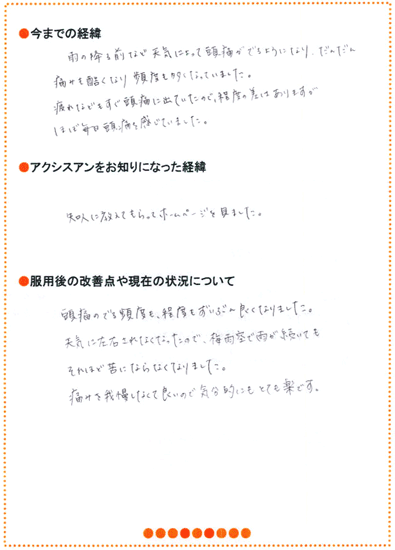 ●今までの経緯
雨の降る前など天気によって頭痛がでるようになり、だんだん
痛みも酷くなり頻度も多くなっていました。
疲れなどもすぐ頭痛に出ていたので、程度の差はありますが
ほぼ毎日頭痛を感じていました。
●アクシスアンをお知りになった経緯
知人に教えてもらってホームページを見ました。
●服用後の改善点や現在の状況について
頭痛のでる頻度も、程度もずいぶん良くなりました。
天気に左右されなくなったので、梅雨空で雨が続いても
それほど苦にならなくなりました。
痛みを我慢しなくて良いので気分的にもとても楽です。